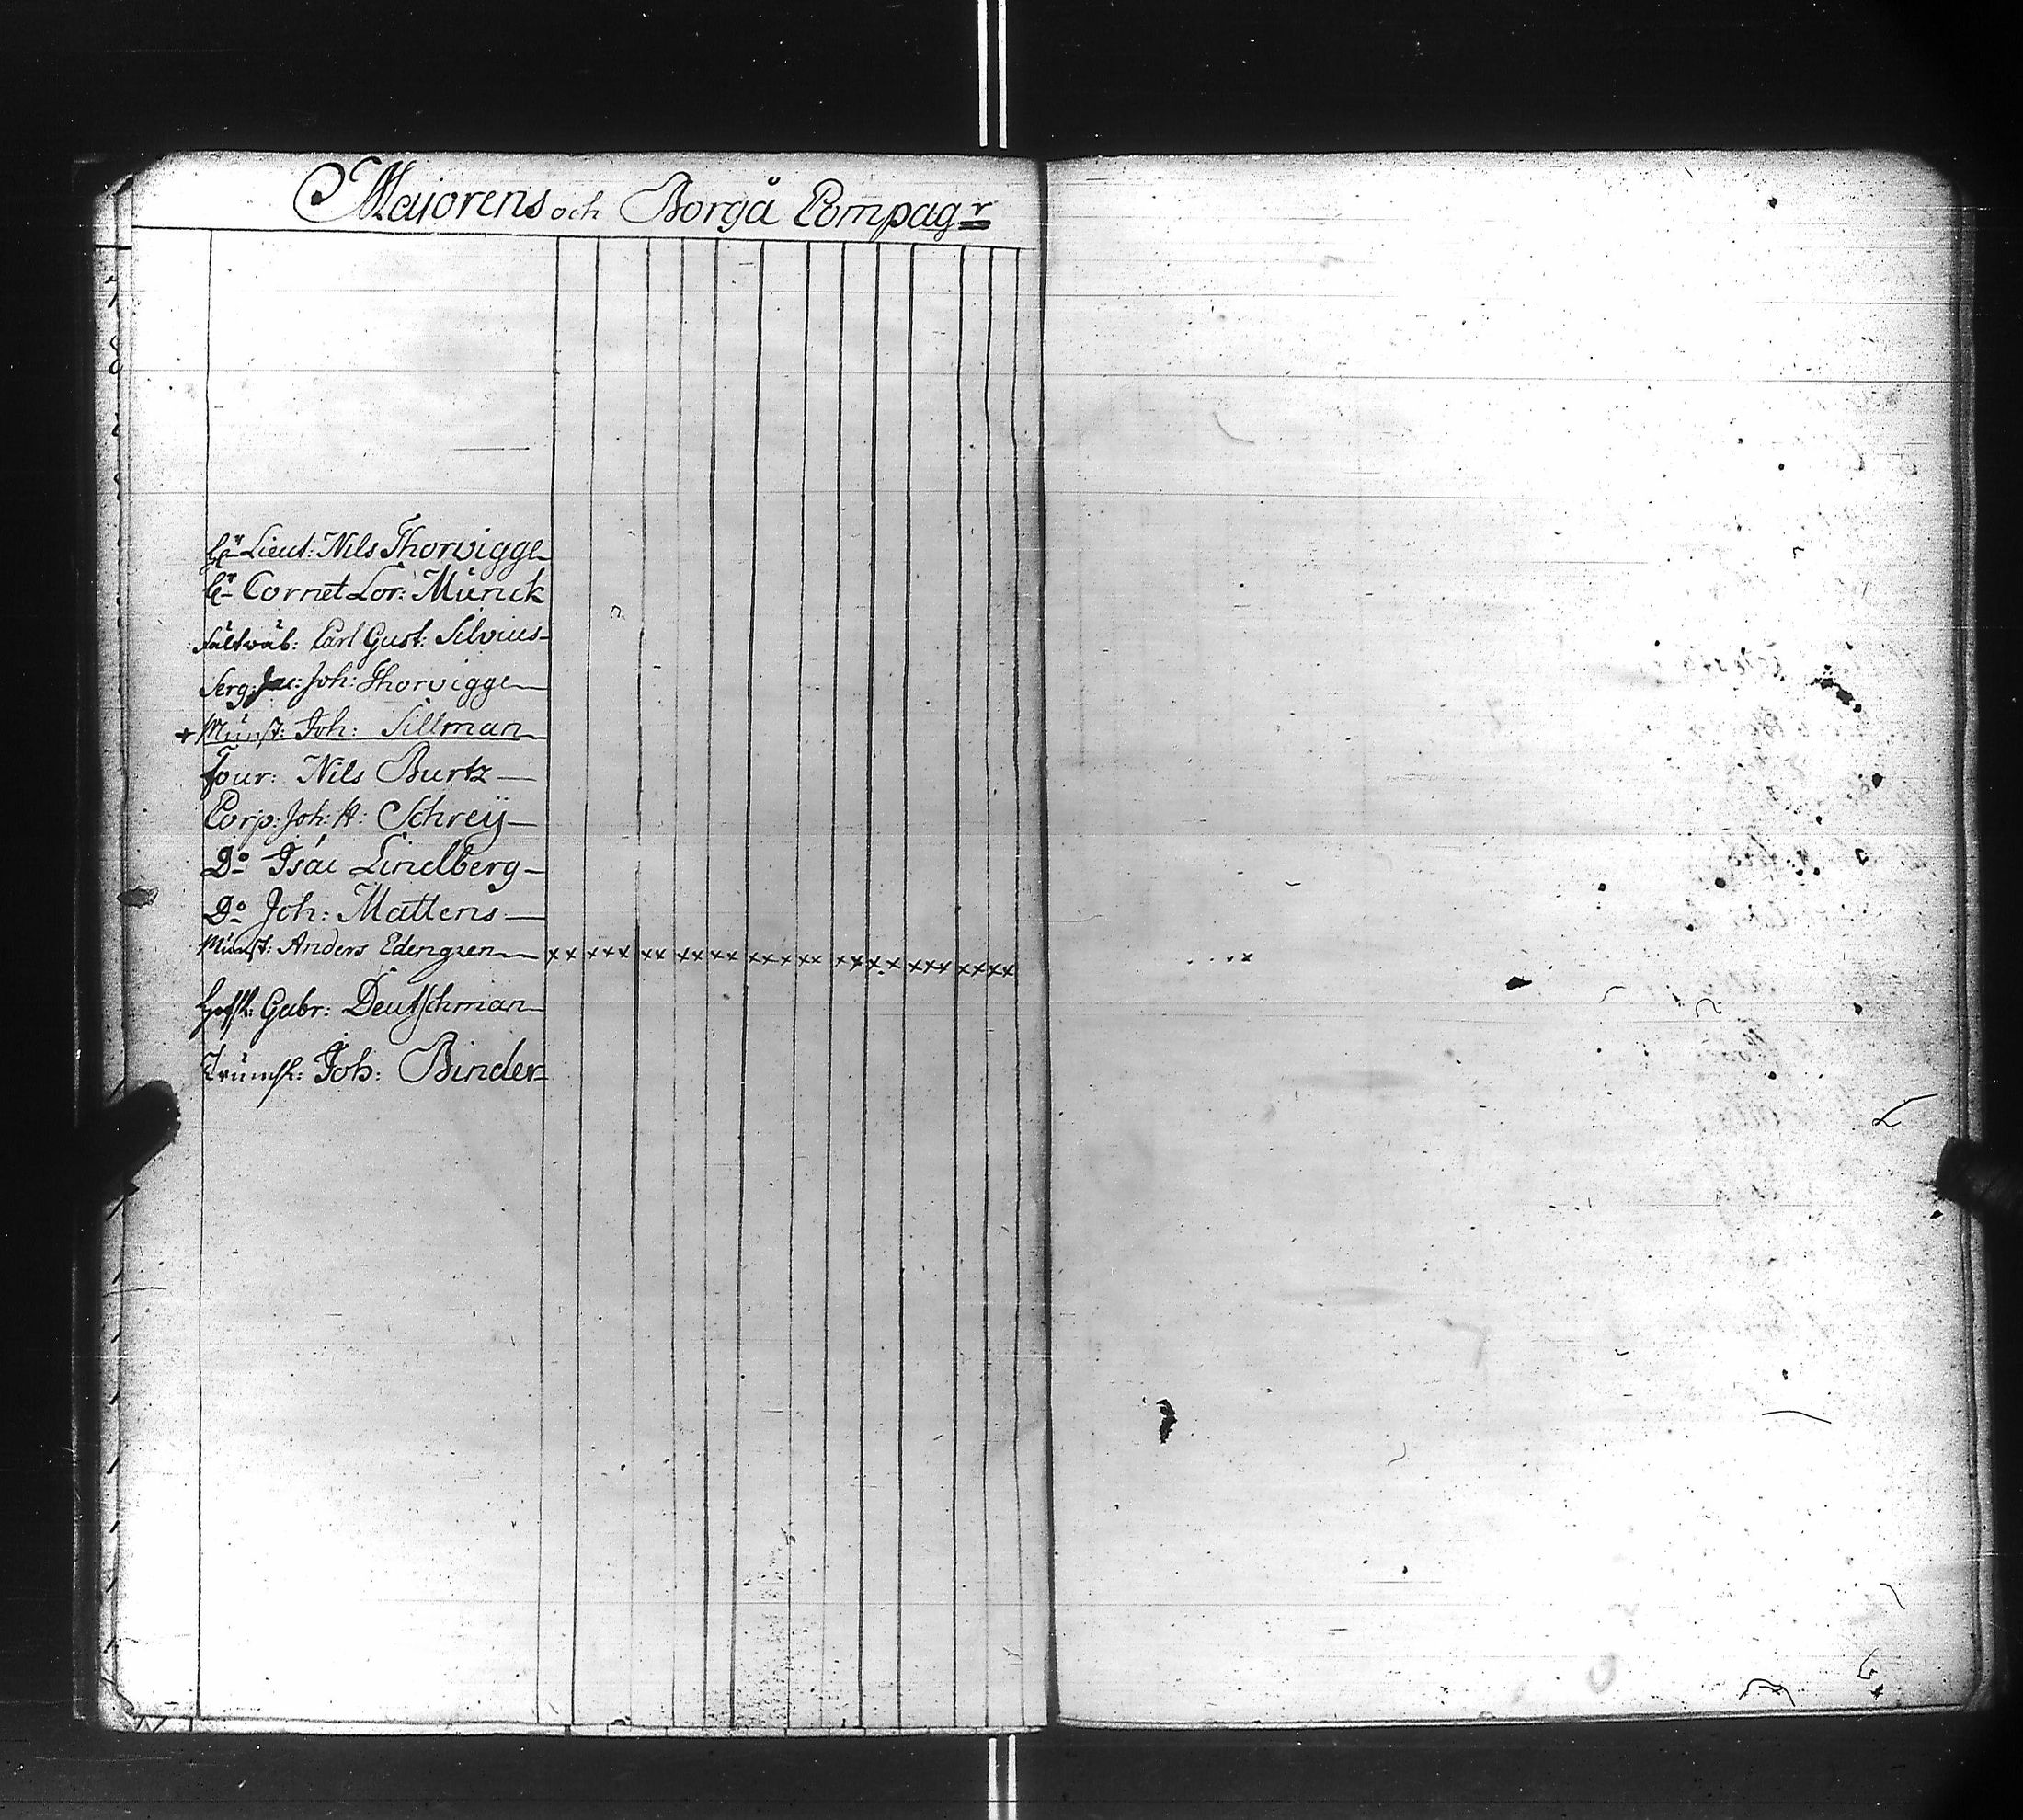 Majorens och Borgå Compag:r
Hr Lieut: Nils Thorvigge
Hr Cornet Lor: Munck
Fältwäb: Carl Gust: Silvius
Serg: Jac: Joh: Thorvigge
+ Münst: Joh: Sillman
Four: Nils Burtz
Corp: Joh: H: Schreij
Do Isác Lindberg
Do Joh: Mattens
Münst: Anders Edengren xx xxx xx xx xx xxx xx xx x x xxx xxxx
Gabr: Deutschman
Trump: Joh: Binder